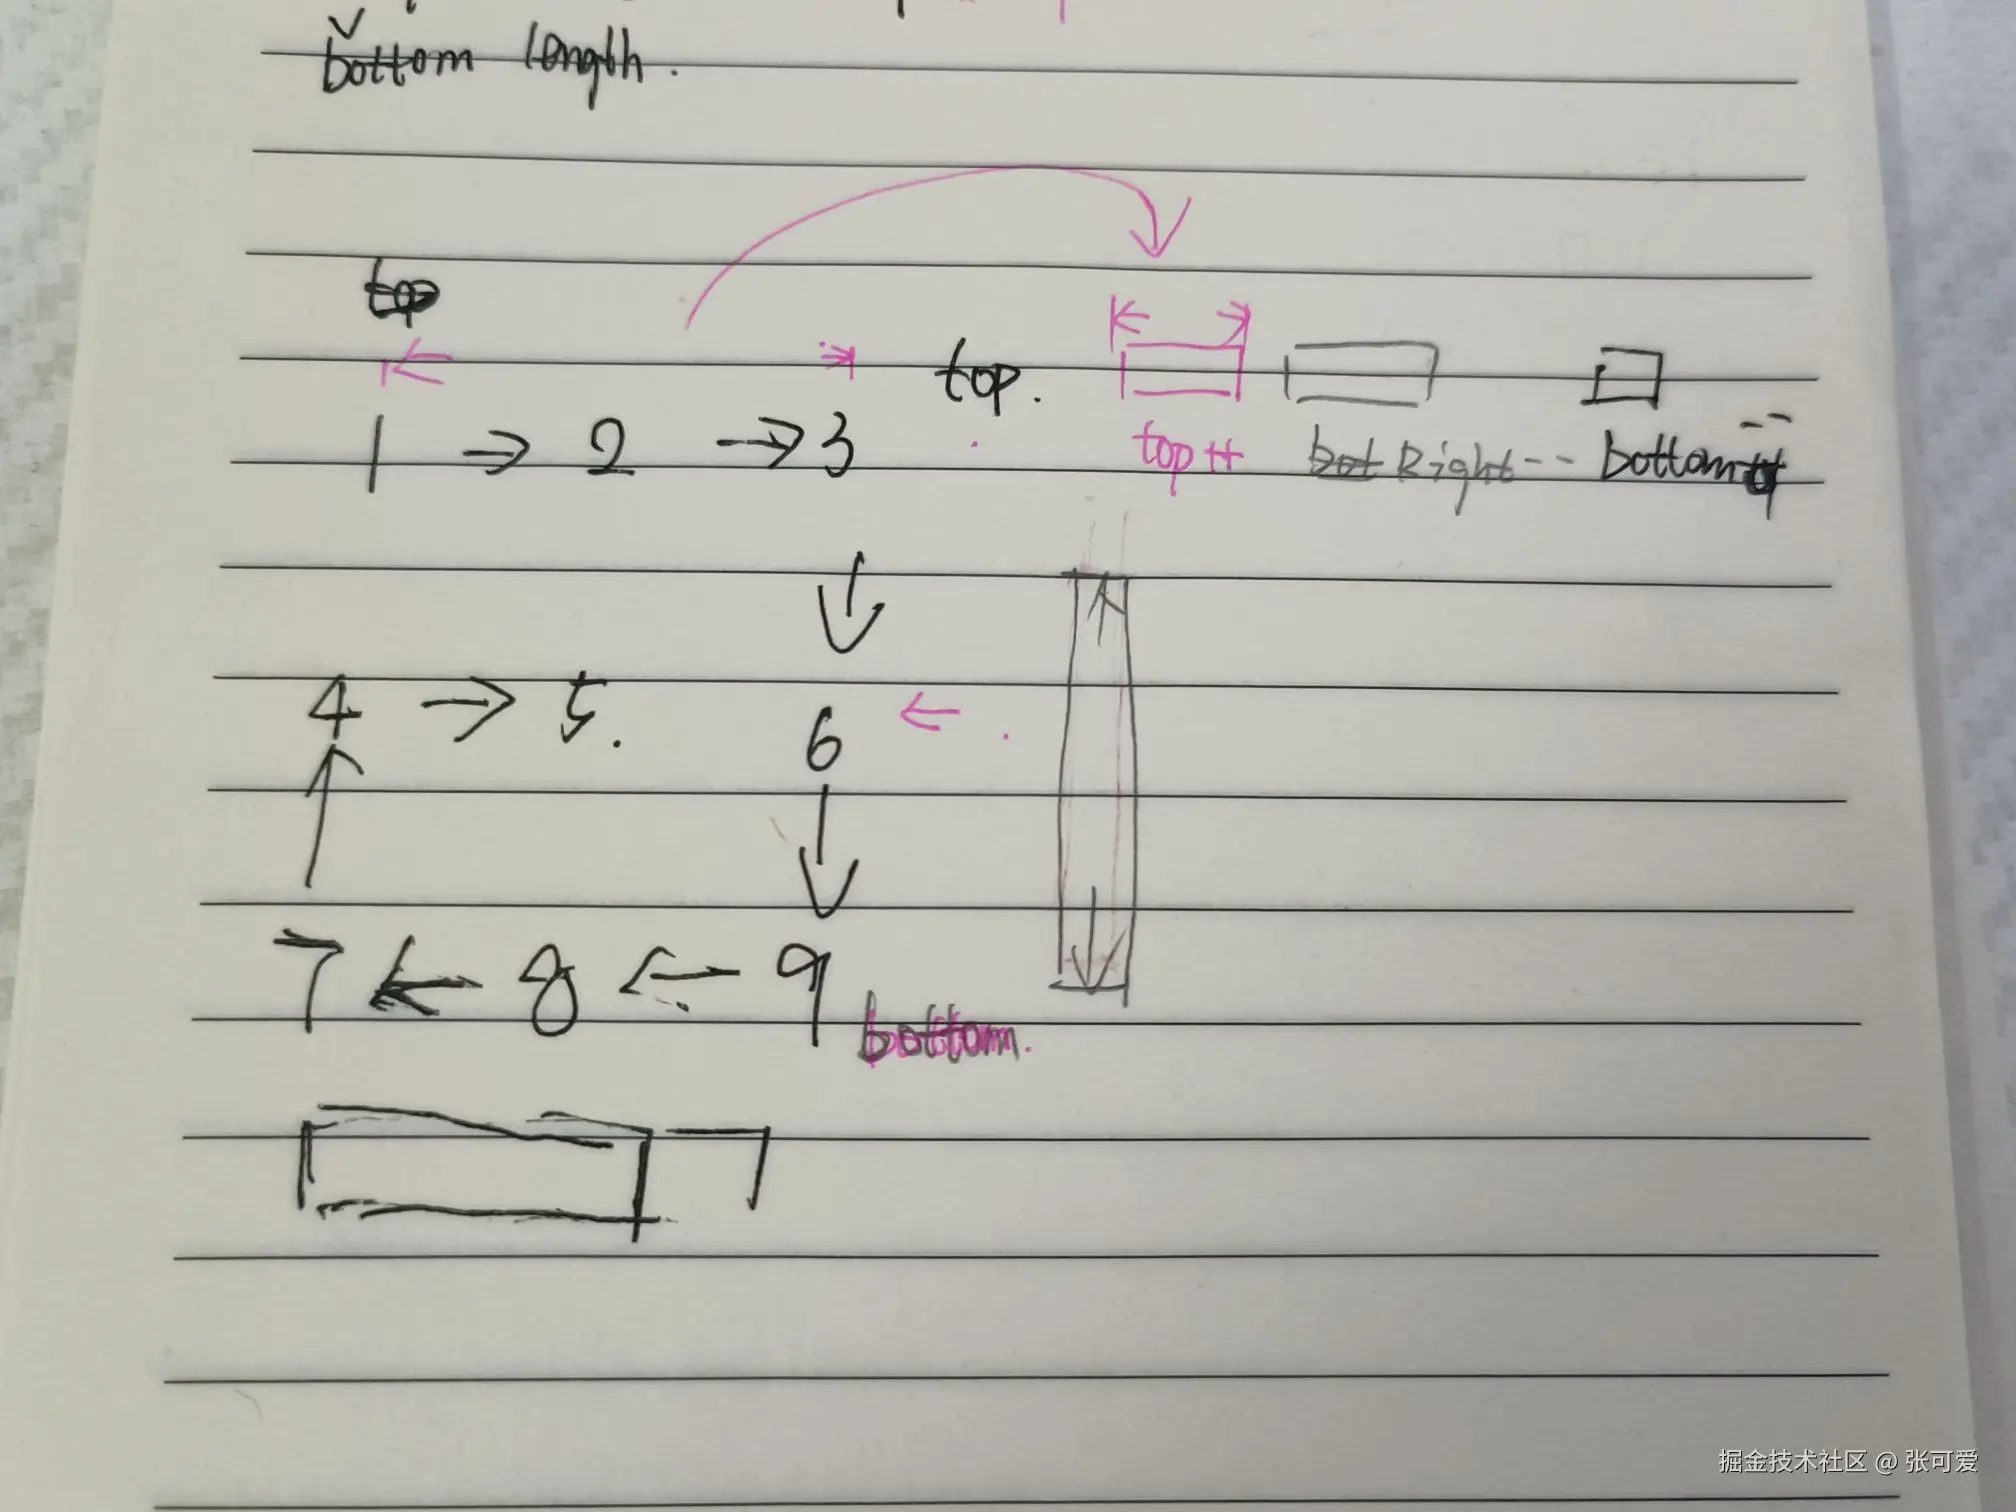 bottom length.
top
top.
1 → 2 → 3
top++ bot Right-- bottom--
4 → 5. 6 ←
7 ← 8 ← 9
bottom.
掘金技术社区 @ 张可爱